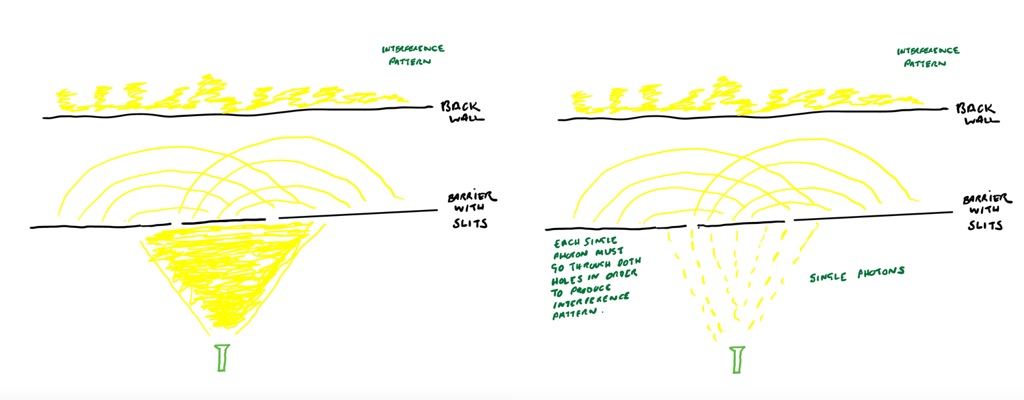 INTERFERENCE
PATTERN
BACK
WALL
BARRIER
WITH
SLITS
INTERFERENCE
PATTERN
BACK
WALL
BARRIER
WITH
SLITS
EACH SINGLE
PHOTON MUST
GO THROUGH BOTH
HOLES IN ORDER
TO PRODUCE
INTERFERENCE
PATTERN.
SINGLE PHOTONS